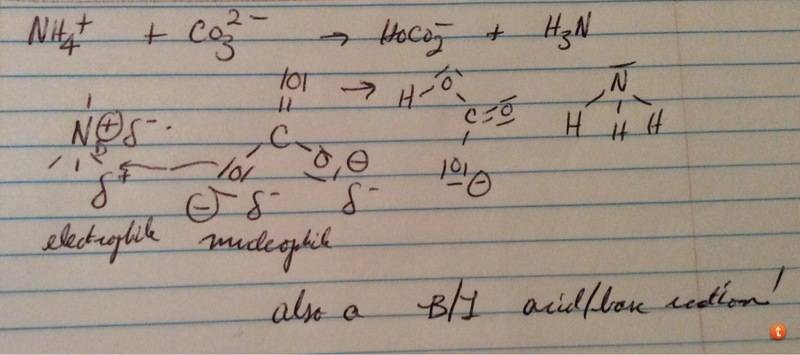 NH₄⁺ + CO₃²⁻ → HOCO₂⁻ + H₃N
|O| → H O N
N⊕ δ⁻ C C=O H H H
δ⁺ |O| O ⊖ |O| ⊖
⊖ δ⁻ δ⁻
electrophile nucleophile
also a B/L acid/base reaction!
t